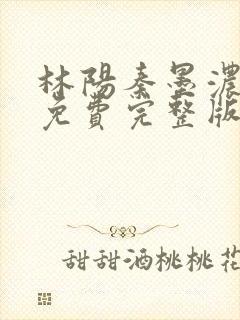 林陽秦墨濃
免費完整版
甜甜酒桃桃花